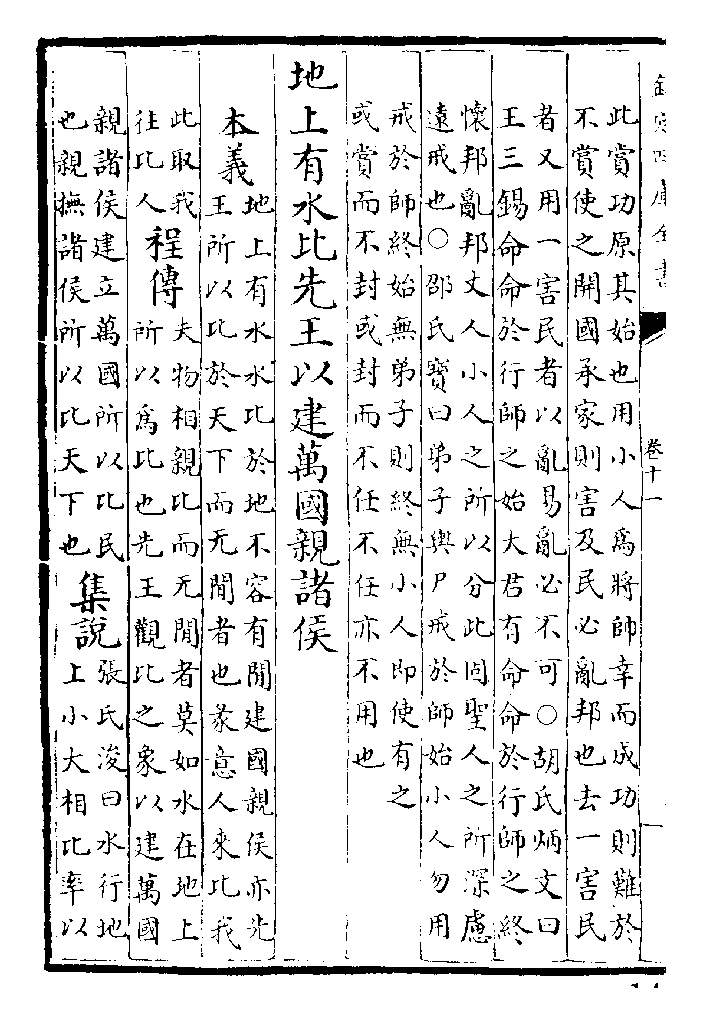 欽定四庫全書
卷十一
此賞功原其始也用小人為將師幸而成功則難於
不賞使之開國承家則害及民必亂邦也去一害民
者又用一害民者以亂易亂必不可○胡氏炳文曰
王三錫命命於行師之始大君有命命於行師之終
懷邦亂邦丈人小人之所以分此固聖人之所深慮
遠戒也○邵氏寶曰弟子輿尸戒於師始小人勿用
戒於師終始無弟子則終無小人即使有之
或賞而不封或封而不任不任亦不用也
地上有水比先王以建萬國親諸侯
本義
地上有水水比於地不容有閒建國親侯亦先
王所以比於天下而无閒者也彖意人來比我
此取我
往比人
程傳
夫物相親比而无閒者莫如水在地上
所以為比也先王觀比之象以建萬國
親諸侯建立萬國所以比民
也親撫諸侯所以比天下也
集說
張氏浚曰水行地
上小大相比率以